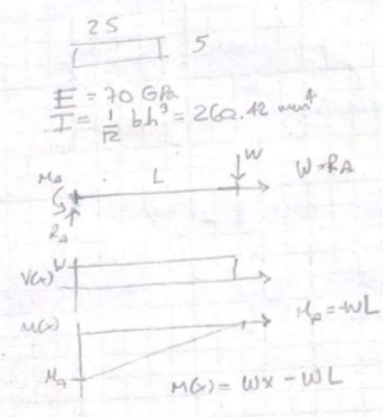 25
5
E = 70 GPa
I = 1/12 bh³ = 260.42 mm⁴
M_A L W W=R_A
R_A
V(x) W
M(x) M_A=-WL
M_A
M(x) = Wx - WL